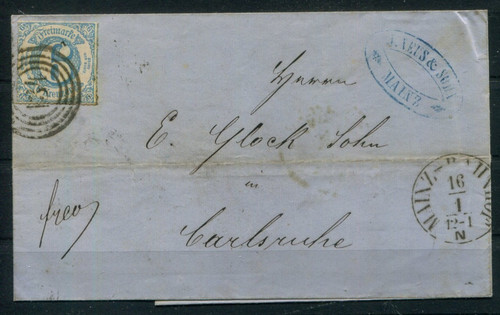 Freimarke
6
& SOHN
MAINZ
Herrn
E. Glock Sohn
in
Carlsruhe
franco
MAINZ-BAHNHOF
16
1
12-1
N